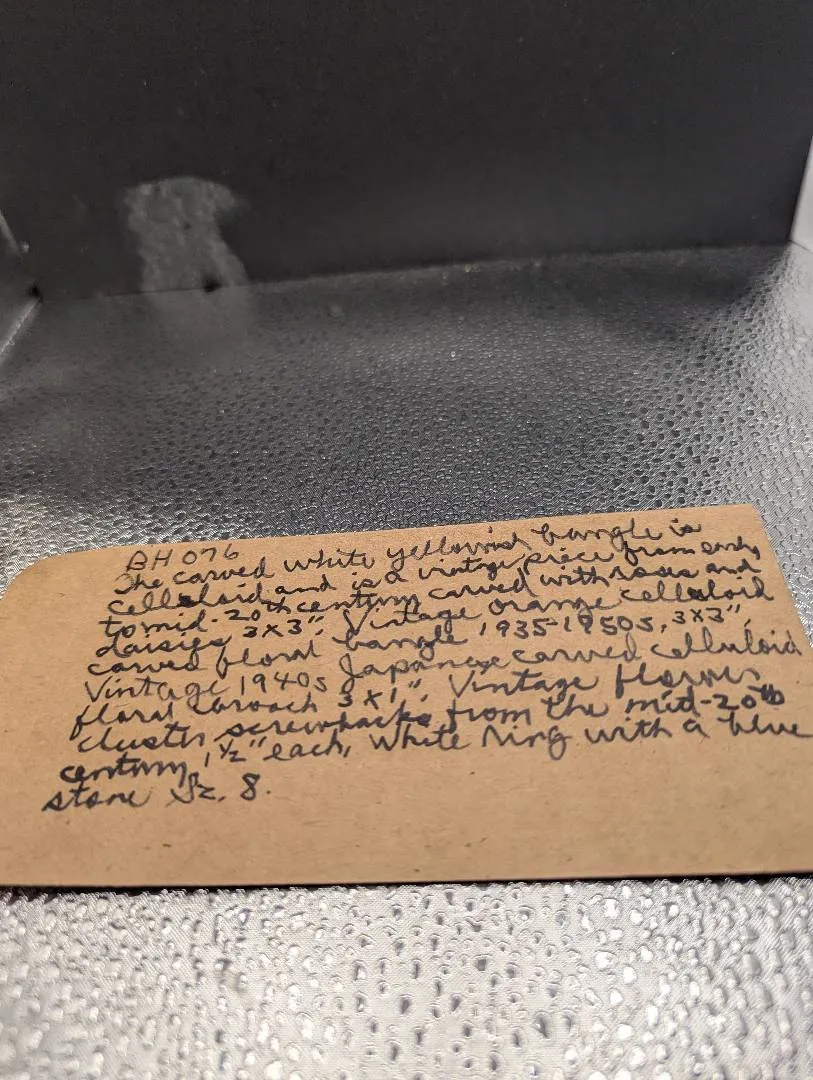 BH 076
The carved white yellowish bangle is
celluloid and is a vintage piece from early
to mid-20th century carved with roses and
daisies 3x3". Vintage orange celluloid
carved floral bangle 1935-1950s, 3x3",
Vintage 1940s Japanese carved celluloid
floral brooch 3x1", Vintage flowers
cluster screwbacks from the mid-20th
century, 1½" each, White ring with a blue
stone Sz. 8.